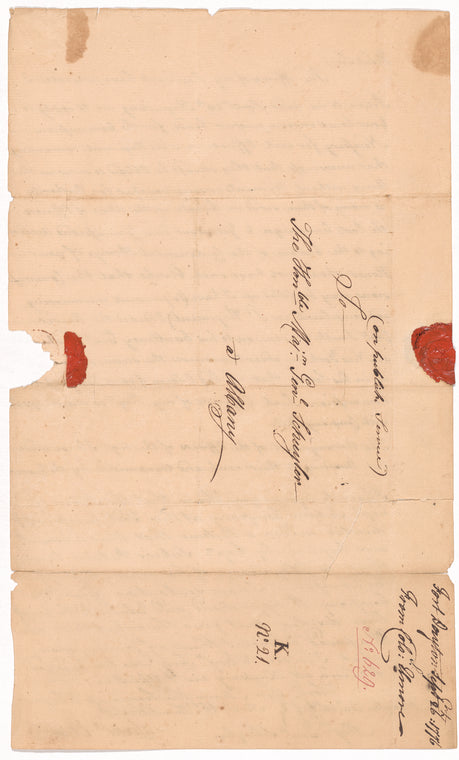 (on publick Service)
To
The Honble. Majr. Genl. Schuyler
at Albany
Fort Dayton Sept. 26: 1776
From Colo: Elmore
No. 629.
K.
No. 21.